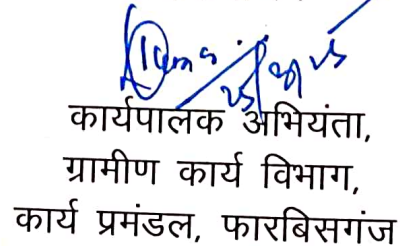 कार्यपालक अभियंता,
ग्रामीण कार्य विभाग,
कार्य प्रमंडल, फारबिसगंज